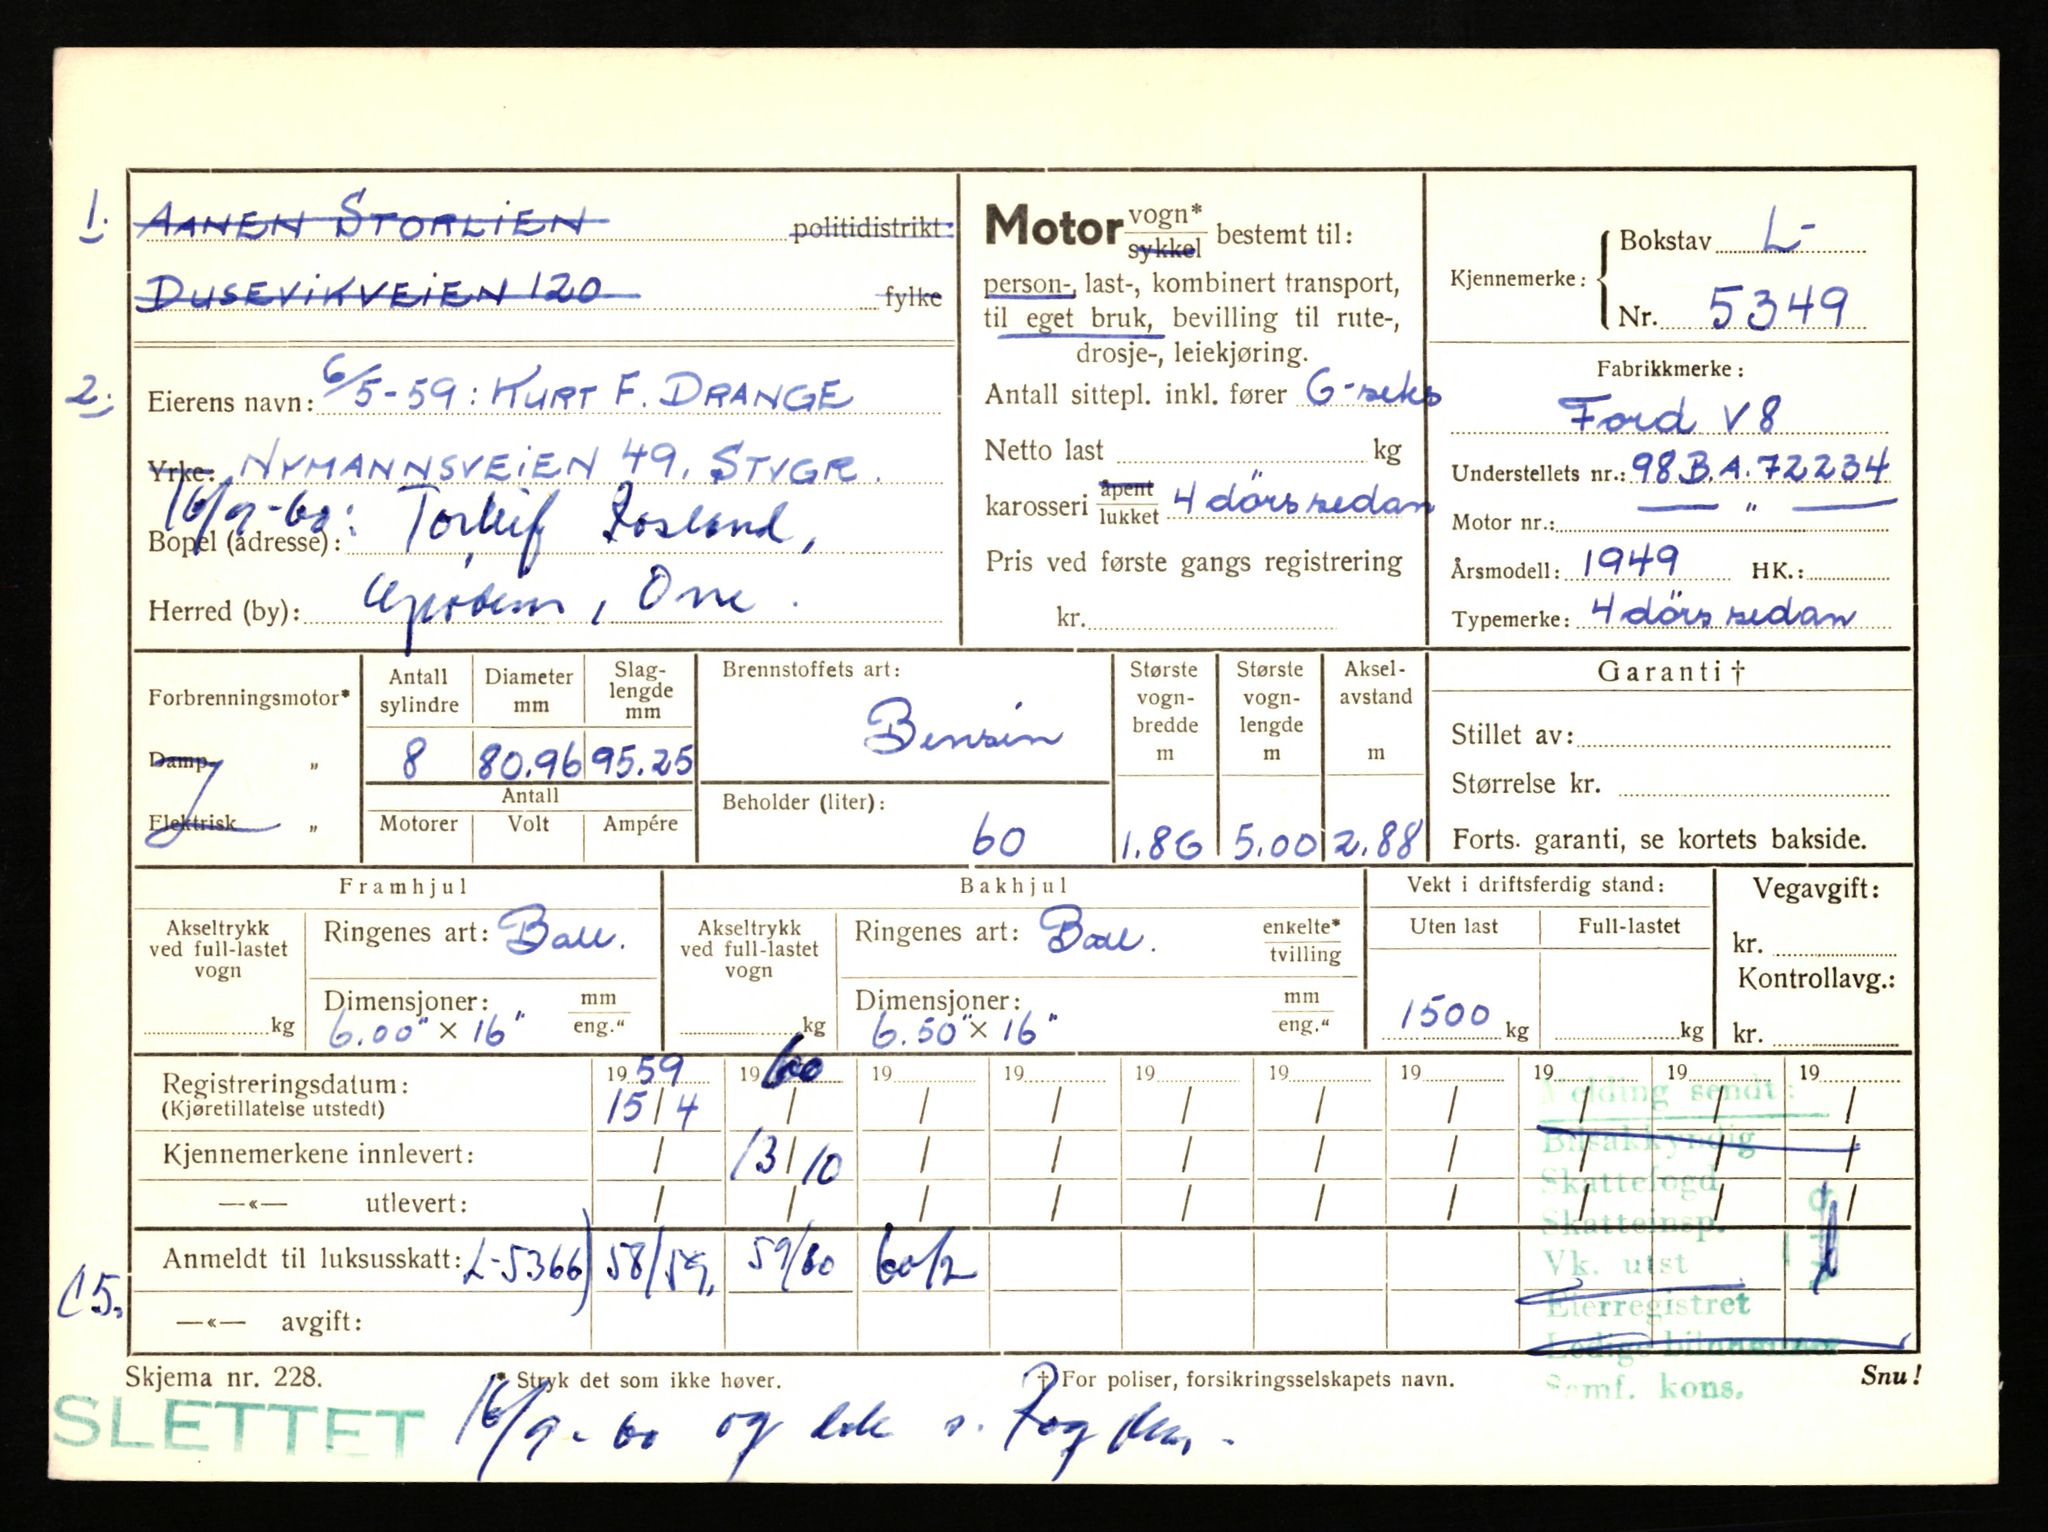 1. AANEN STORLIEN politidistrikt:
DUSEVIKVEIEN 120 fylke
2. Eierens navn: 6/5-59: KURT F. DRANGE
Yrke: NYMANNSVEIEN 49, STVGR.
16/9-60: Torleif
Bopel (adresse):
Herred (by):
Motor vogn* sykkel bestemt til:
person-, last-, kombinert transport,
til eget bruk, bevilling til rute-,
drosje-, leiekjøring.
Antall sittepl. inkl. fører 6-seks
Netto last kg
karosseri åpent lukket 4 dörs sedan
Pris ved første gangs registrering
kr.
Kjennemerke: Bokstav L-
Nr. 5349
Fabrikkmerke:
Ford V8
Understellets nr.: 98 B.A. 72234
Motor nr.: — " —
Årsmodell: 1949 HK.:
Typemerke: 4 dörs sedan
Forbrenningsmotor*
Damp- "
Elektrisk "
Antall sylindre
Diameter mm
Slag-lengde mm
8 80.96 95.25
Antall
Motorer Volt Ampére
Brennstoffets art:
Bensin
Beholder (liter):
60
Største vogn-bredde m
1.86
Største vogn-lengde m
5.00
Aksel-avstand m
2.88
Garanti †
Stillet av:
Størrelse kr.
Forts. garanti, se kortets bakside.
Framhjul
Akseltrykk ved full-lastet vogn
kg
Ringenes art: Ball.
Dimensjoner: mm eng."
6.00" × 16"
Bakhjul
Akseltrykk ved full-lastet vogn
kg
Ringenes art: Ball. enkelte* tvilling
Dimensjoner: mm eng."
6.50" × 16"
Vekt i driftsferdig stand:
Uten last Full-lastet
1500 kg kg
Vegavgift:
kr.
Kontrollavg.:
kr.
Registreringsdatum: 19 59 19 60 19 19 19 19 19 19 19 19
(Kjøretillatelse utstedt) 15/4 / / / / / / / / /
Kjennemerkene innlevert: / 13/10 / / / / / / / /
—«— utlevert: / / / / / / / / / /
Anmeldt til luksusskatt: L-5366) 58/59. 59/60 60/2
15.
—«— avgift:
Melding sendt:
Bilsakkyndig
Skattefogd
Skatteinsp.
Vk. utst
Eierregistret
Ledige bilnummer
Samf. kons.
Skjema nr. 228. * Stryk det som ikke høver. † For poliser, forsikringsselskapets navn. Snu!
SLETTET 16/9-60 og